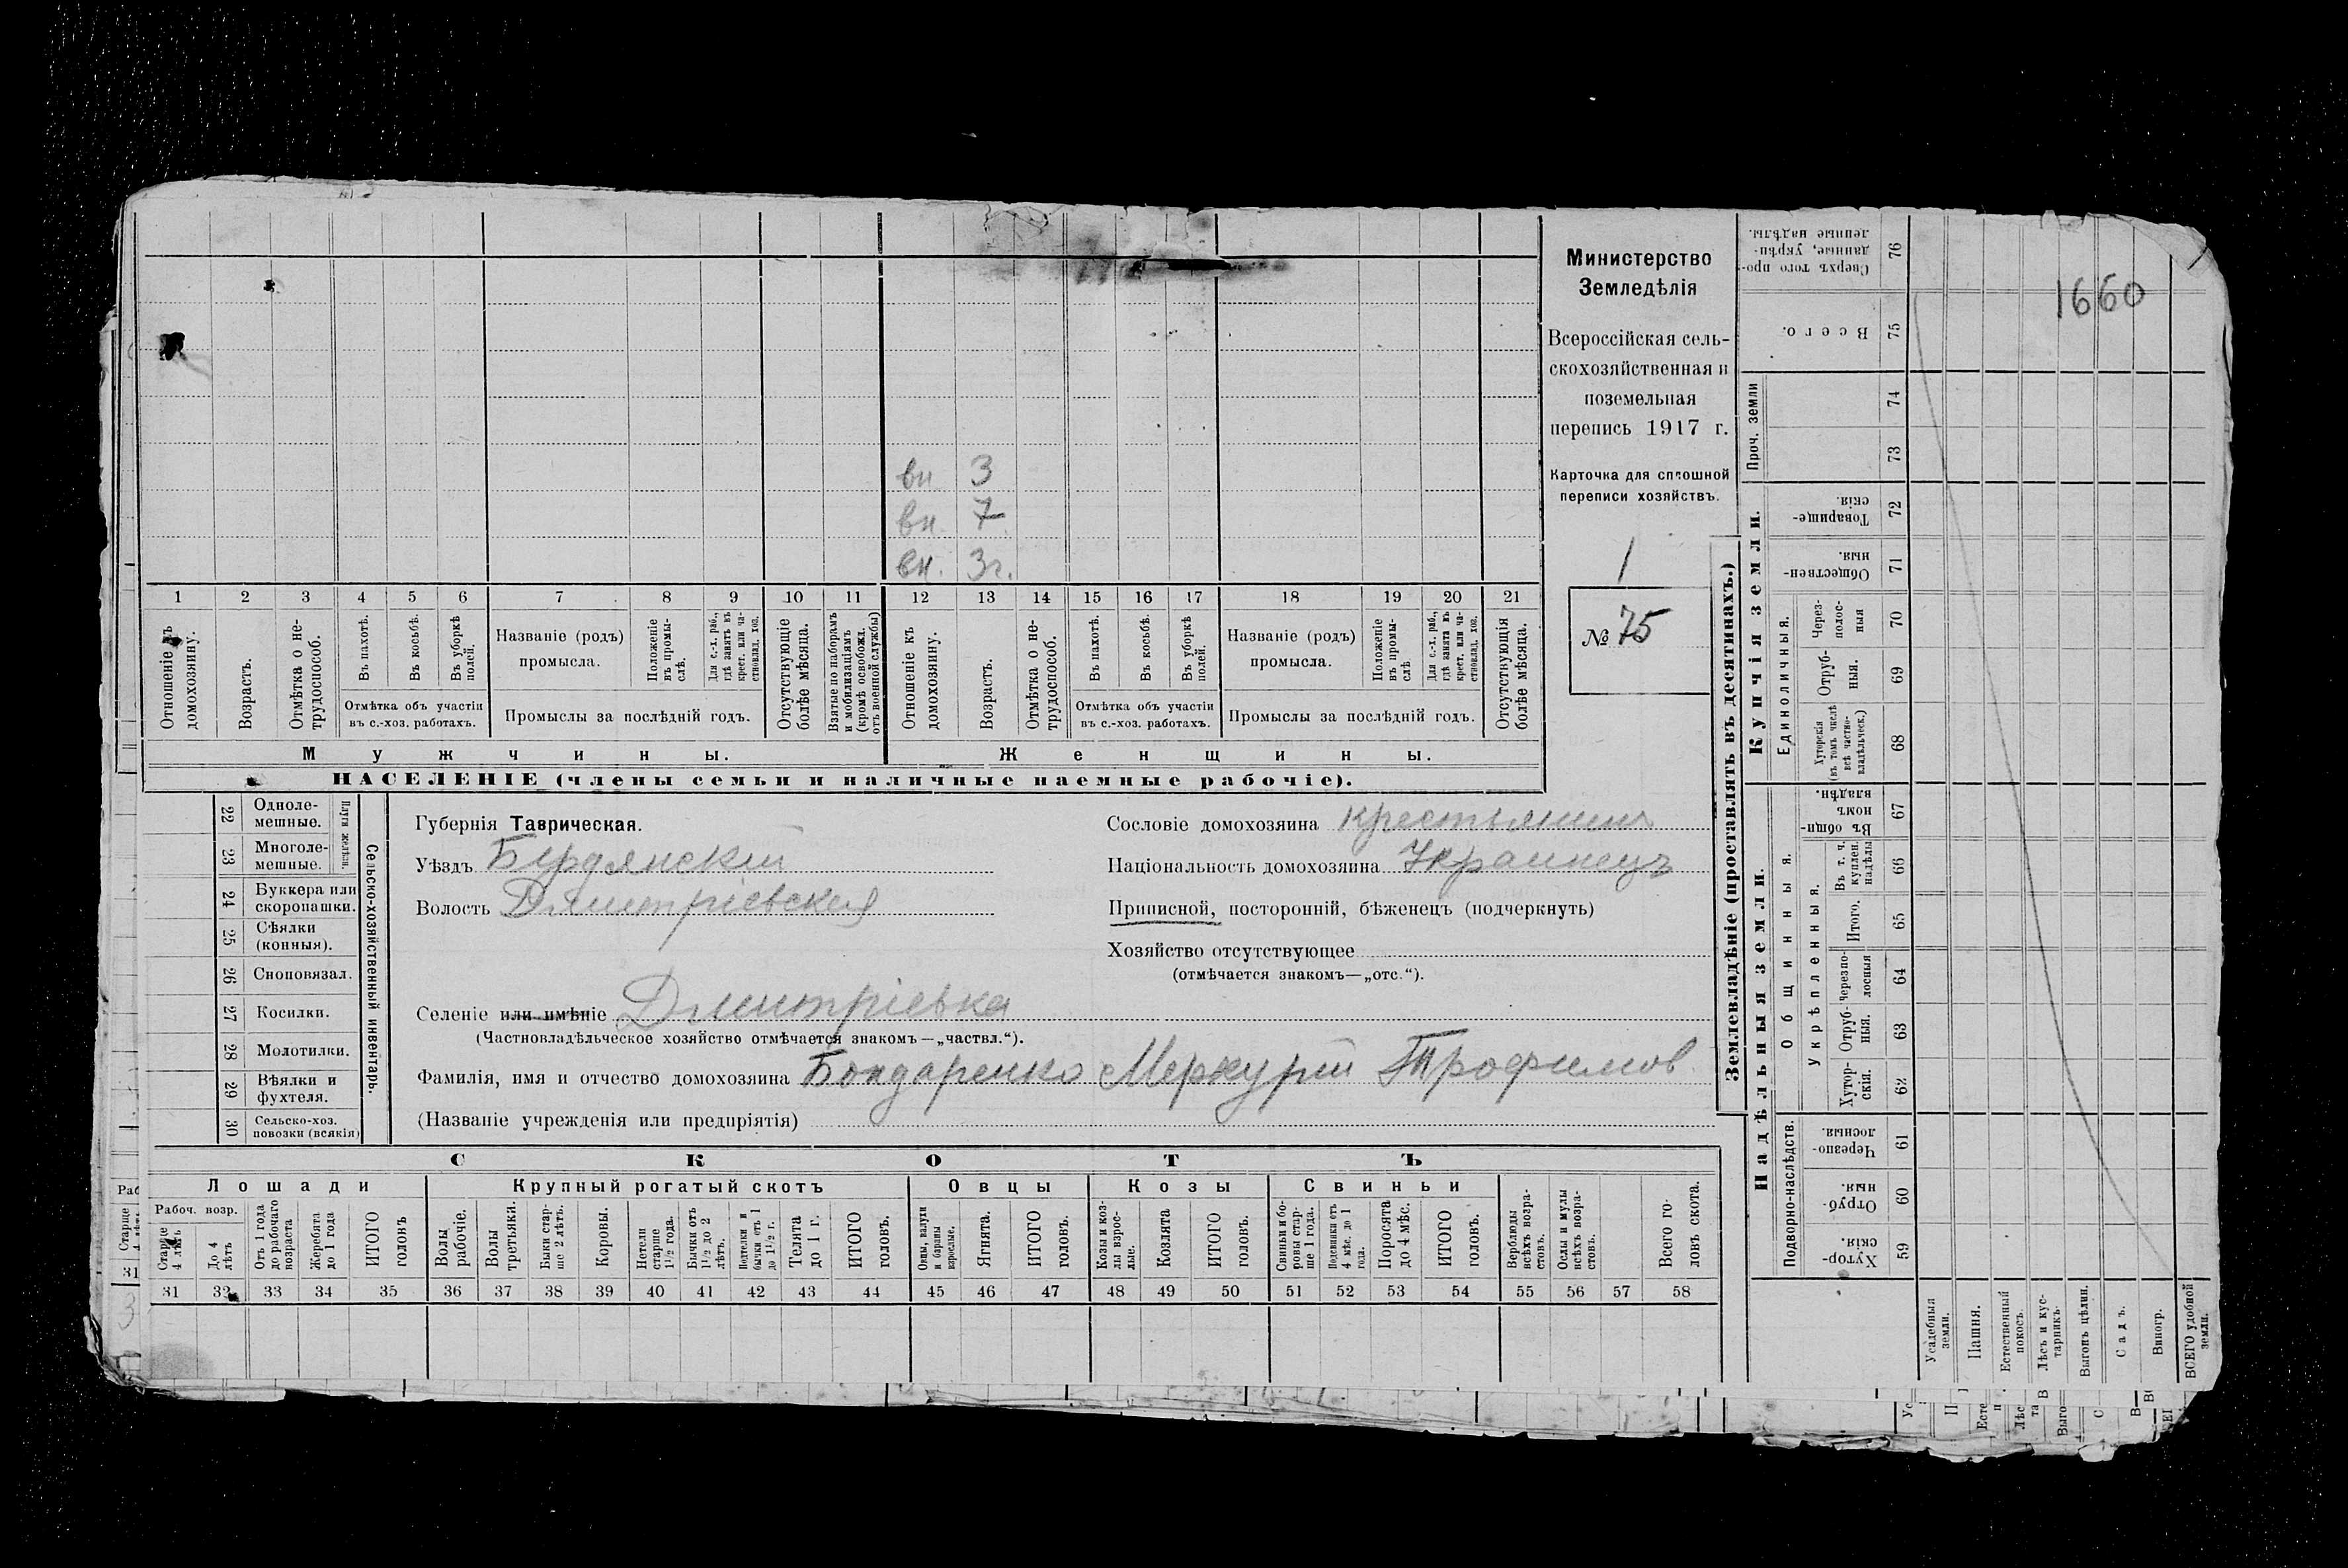 1660
Министерство
Земледѣлія
Всероссійская сель-
скохозяйственная и
поземельная
перепись 1917 г.
Карточка для сплошной
переписи хозяйствъ.
1
№ 75
вн 3
вн. 7
вн. 3г.
1 2 3 4 5 6 7 8 9 10 11 12 13 14 15 16 17 18 19 20 21
Отношеніе къ домохозяину.
Возрастъ.
Отмѣтка о не-трудоспособ.
Въ пахотѣ.
Въ косьбѣ.
Въ уборкѣ полей.
Отмѣтка объ участіи
въ с.-хоз. работахъ.
Названіе (родъ)
промысла.
Положеніе въ промы-слѣ.
Для с.-х. раб., гдѣ занятъ въ крест. или ча-стновлад. хоз.
Промыслы за послѣдній годъ.
Отсутствующіе болѣе мѣсяца.
Взятые по наборамъ и мобилизаціямъ (кромѣ освобожд. отъ военной службы)
Отношеніе къ домохозяину.
Возрастъ.
Отмѣтка о не-трудоспособ.
Въ пахотѣ.
Въ косьбѣ.
Въ уборкѣ полей.
Отмѣтка объ участіи
въ с.-хоз. работахъ.
Названіе (родъ)
промысла.
Положеніе въ промы-слѣ
Для с.-х. раб., гдѣ занята въ крест. или ча-стновлад. хоз.
Промыслы за послѣдній годъ.
Отсутствующія болѣе мѣсяца.
Мужчины. Женщины.
НАСЕЛЕНІЕ (члены семьи и наличные наемные рабочіе).
Сельско-хозяйственный инвентарь.
Плуги желѣзн.
22 Одноле-
мешные.
23 Многоле-
мешные.
24 Буккера или
скоропашки.
25 Сѣялки
(конныя).
26 Сноповязал.
27 Косилки.
28 Молотилки.
29 Вѣялки и
фухтеля.
30 Сельско-хоз.
повозки (всякія)
Губернія Таврическая.
Уѣздъ Бердянскій
Волость Дмитріевская
Селеніе или имѣніе Дмитріевка
(Частновладѣльческое хозяйство отмѣчается знакомъ—„частвл.“).
Фамилія, имя и отчество домохозяина Бондаренко Меркурій Трофимов
(Названіе учрежденія или предпріятія)
Сословіе домохозяина крестьянинъ
Національность домохозяина Украинецъ
Приписной, посторонній, бѣженецъ (подчеркнуть)
Хозяйство отсутствующее
(отмѣчается знакомъ—„отс.“).
СКОТЪ
Лошади Крупный рогатый скотъ Овцы Козы Свиньи
Рабоч. возр.
Старше 4 лѣтъ
До 4 лѣтъ
Отъ 1 года до рабочаго возраста
Жеребята до 1 года
ИТОГО головъ
Волы рабочіе.
Волы третьяки.
Быки стар-ше 2 лѣтъ.
Коровы.
Нетели старше 1½ года.
Бычки отъ 1½ до 2 лѣтъ.
Подтелки и бычки отъ 1 до 1½ г.
Телята до 1 г.
ИТОГО головъ.
Овцы, валухи и бараны взрослые.
Ягнята.
ИТОГО головъ.
Козы и коз-лы взрос-лые.
Козлята
ИТОГО головъ.
Свиньи и бо-ровы стар-ше 1 года.
Подсвинки отъ 4 мѣс. до 1 года.
Поросята до 4 мѣс.
ИТОГО головъ.
Верблюды всѣхъ возра-стовъ.
Ослы и мулы всѣхъ возра-стовъ.
Всего го-ловъ скота.
31 32 33 34 35 36 37 38 39 40 41 42 43 44 45 46 47 48 49 50 51 52 53 54 55 56 57 58
Землевладѣніе (проставлять въ десятинахъ.)
Надѣльныя земли.
Купчія земли.
Проч. земли
Подворно-наслѣдств.
Общинныя.
Укрѣпленныя.
Единоличныя.
Сверхъ того про-данные, укрѣп-ленные надѣлы. 76
Всего. 75
74
73
Товарище-скія. 72
Обществен-ныя. 71
Через-полос-ныя 70
Отруб-ныя. 69
Хуторскія (въ томъ числѣ всѣ частно-владѣльческ.) 68
Въ общи-номъ владѣн. 67
Въ т. ч. куплен. надѣлы 66
Итого. 65
Черезпо-лосныя 64
Отруб-ныя. 63
Хутор-скія. 62
Черезпо-лосныя. 61
Отруб-ныя. 60
Хутор-скія. 59
Усадебныя земли.
Пашня.
Естественный покосъ.
Лѣсъ и кус-тарникъ.
Выгонъ цѣлин.
Садъ.
Виногр.
ВСЕГО удобной земли.